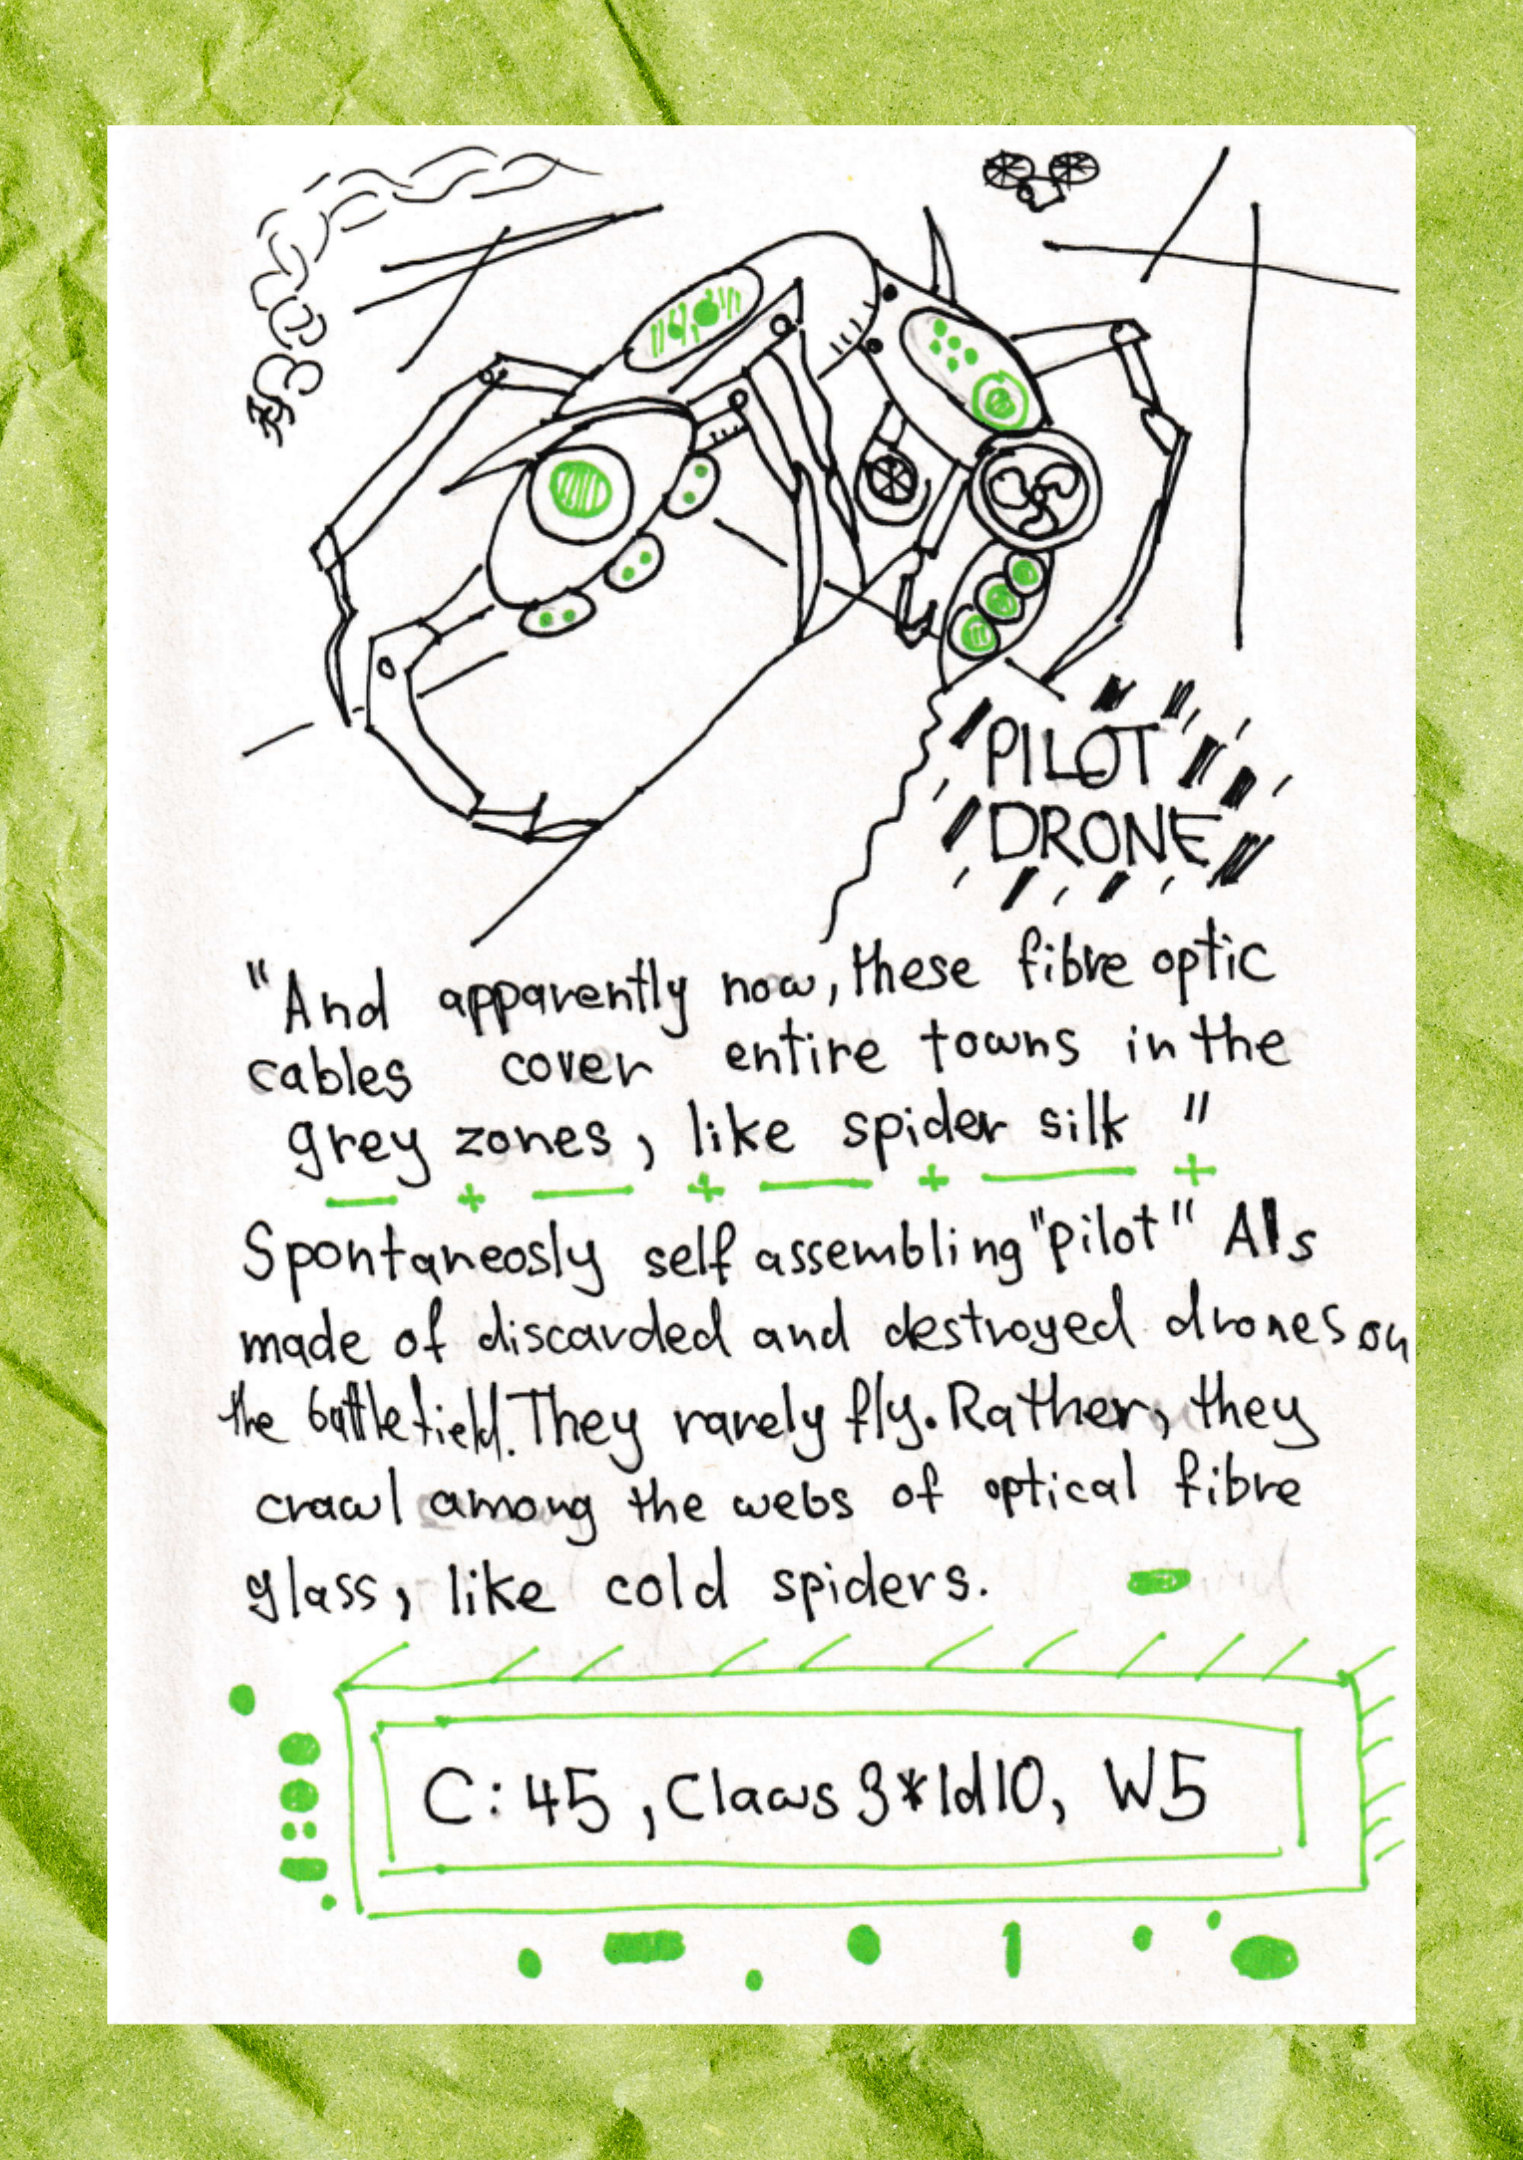 PILOT
DRONE
"And apparently now, these fibre optic
cables cover entire towns in the
grey zones, like spider silk "
Spontaneosly self assembling "pilot" AIs
made of discarded and destroyed drones on
the battlefield. They rarely fly. Rather, they
crawl among the webs of optical fibre
glass, like cold spiders.
C: 45, Claws 3*1d10, W5